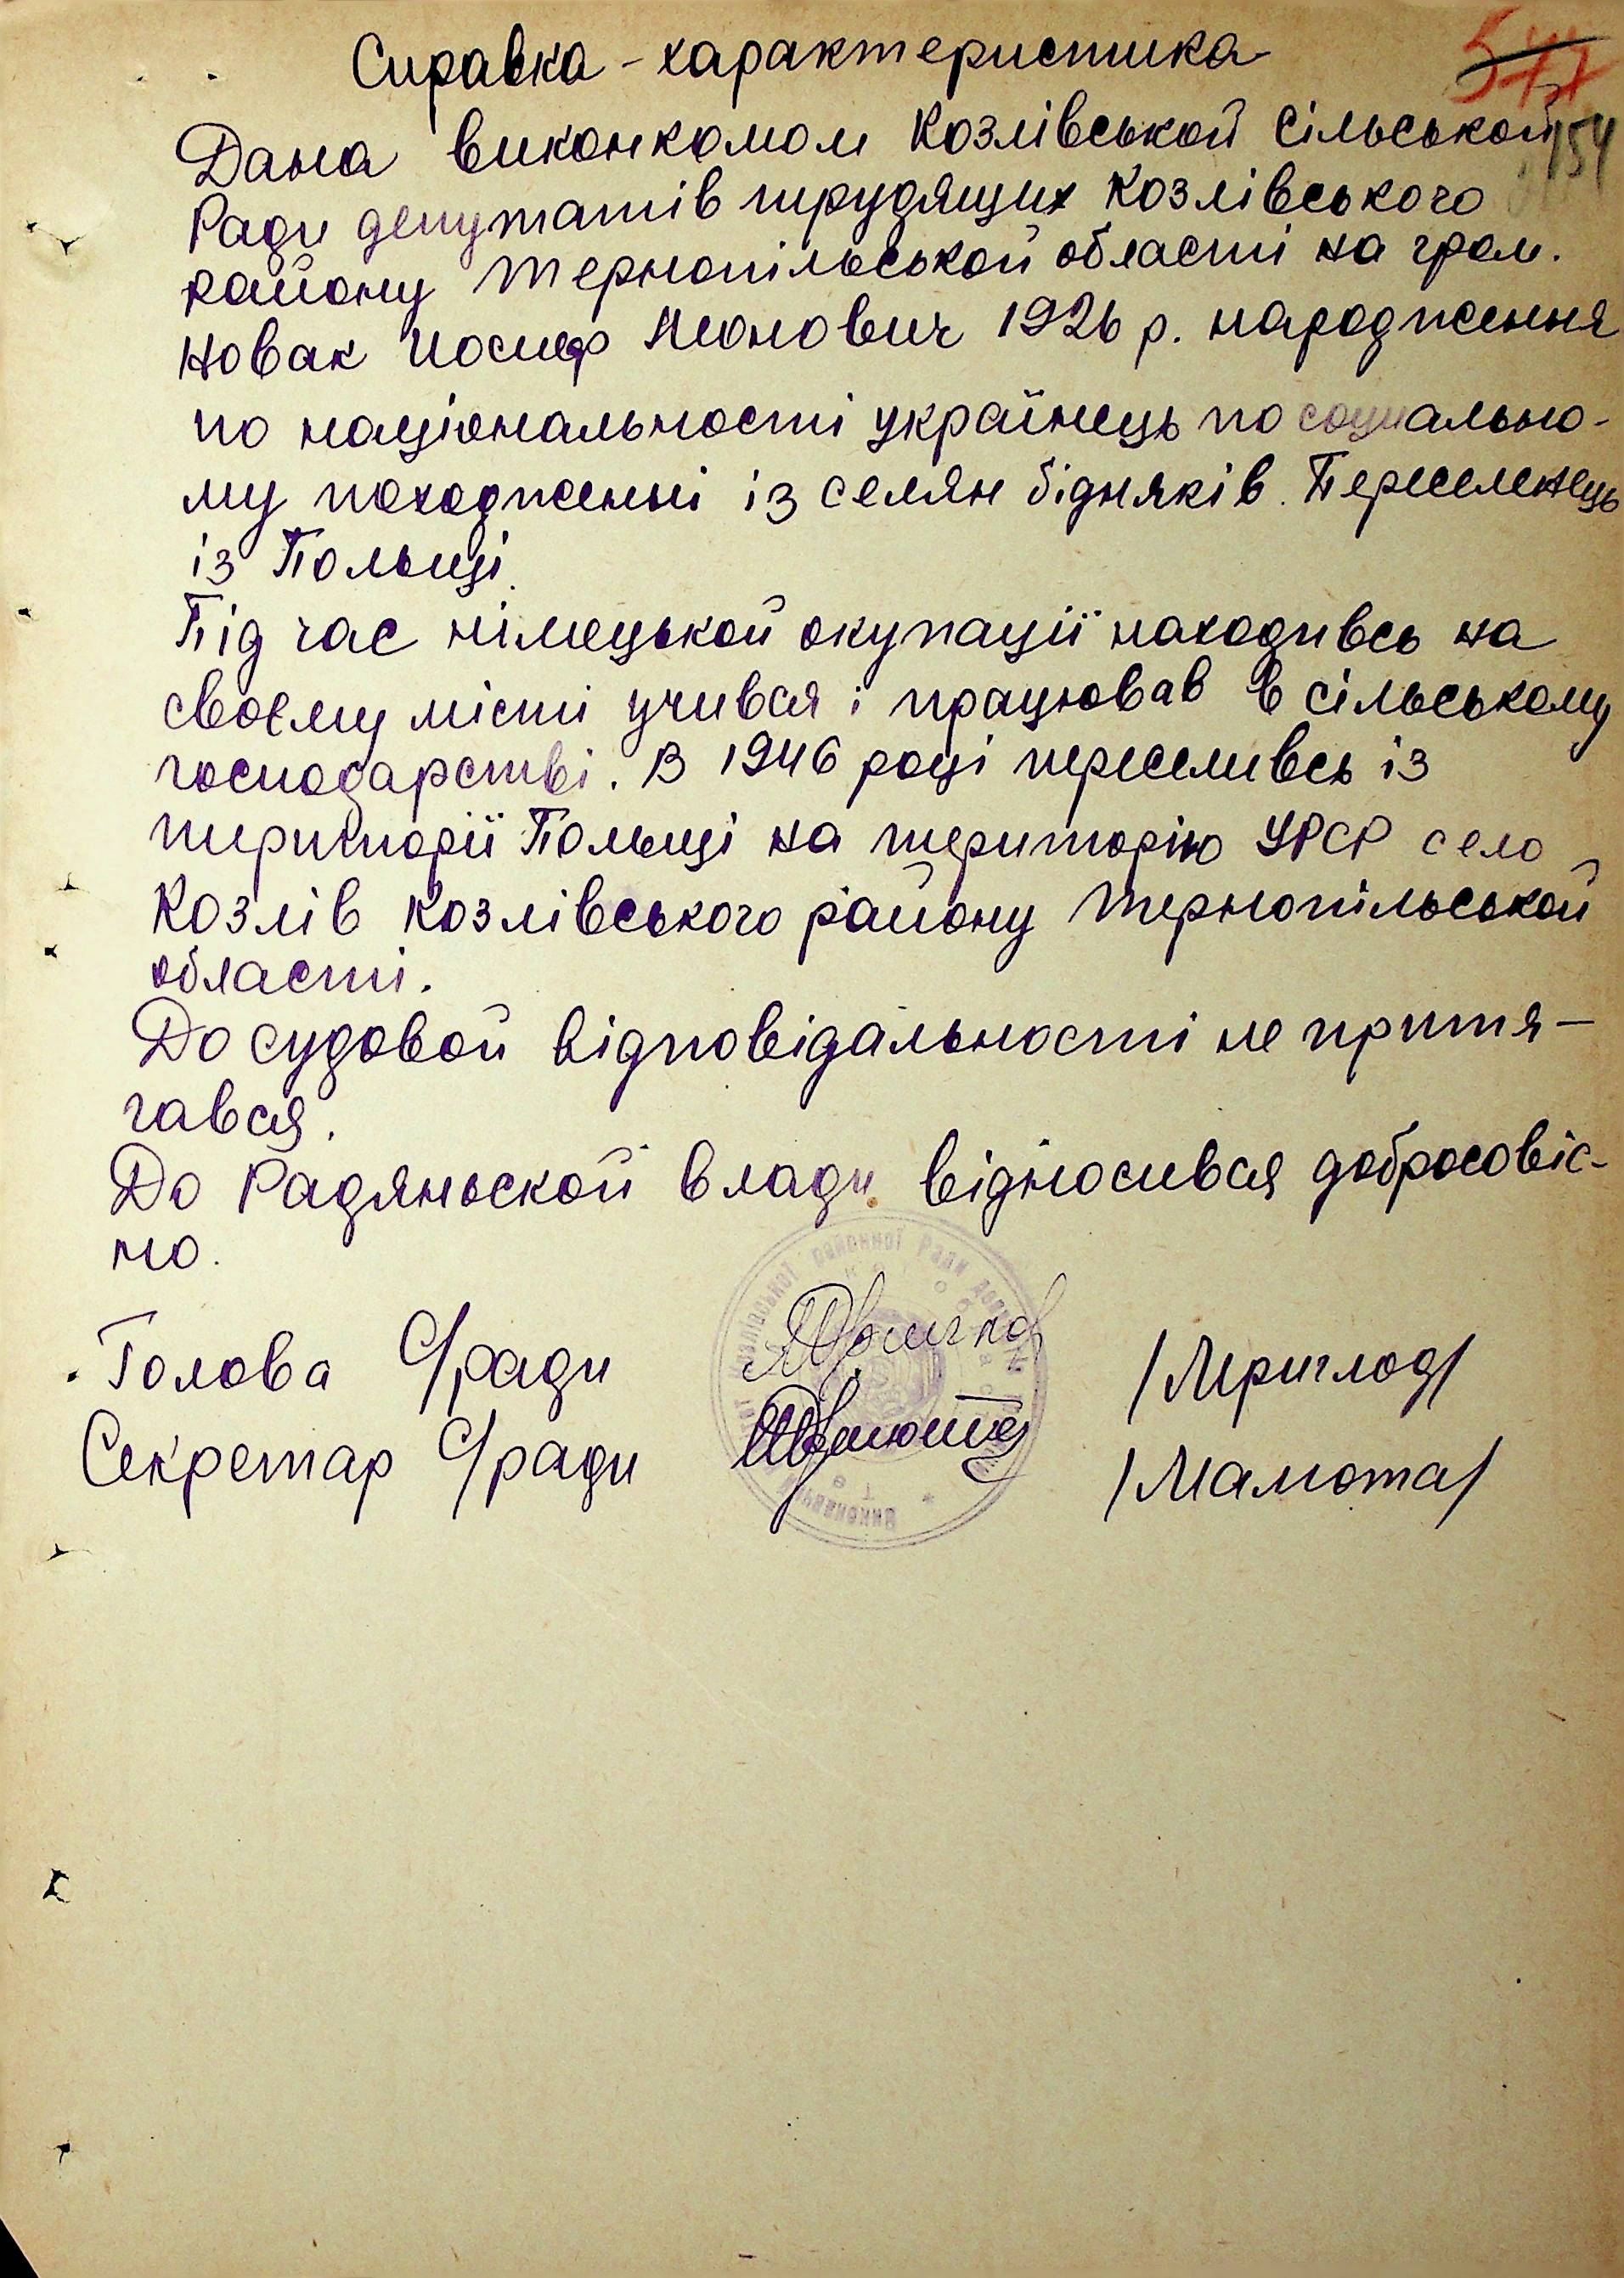 Справка - характеристика
154
Дана виконкомом Козлівськой сільськой
Ради депутатів трудящих Козлівського
району Тернопільськой області на гром.
Новак Иосиф Леонович 1926 р. народження
по національності українець по социально-
му походженні із селян бідняків. Переселенець
із Польщі.
Під час німецькой окупації находивсь на
своєму місті учився і працював в сільському
господарстві. В 1946 році переселивсь із
території Польщі на територію УРСР село
Козлів Козлівського району Тернопільськой
області.
До судовой відповідальності не притя-
гався.
До Радяньской влади відносився добросовіс-
но.
Голова С/ради /Мриглод/
Секретар С/ради /Мамота/